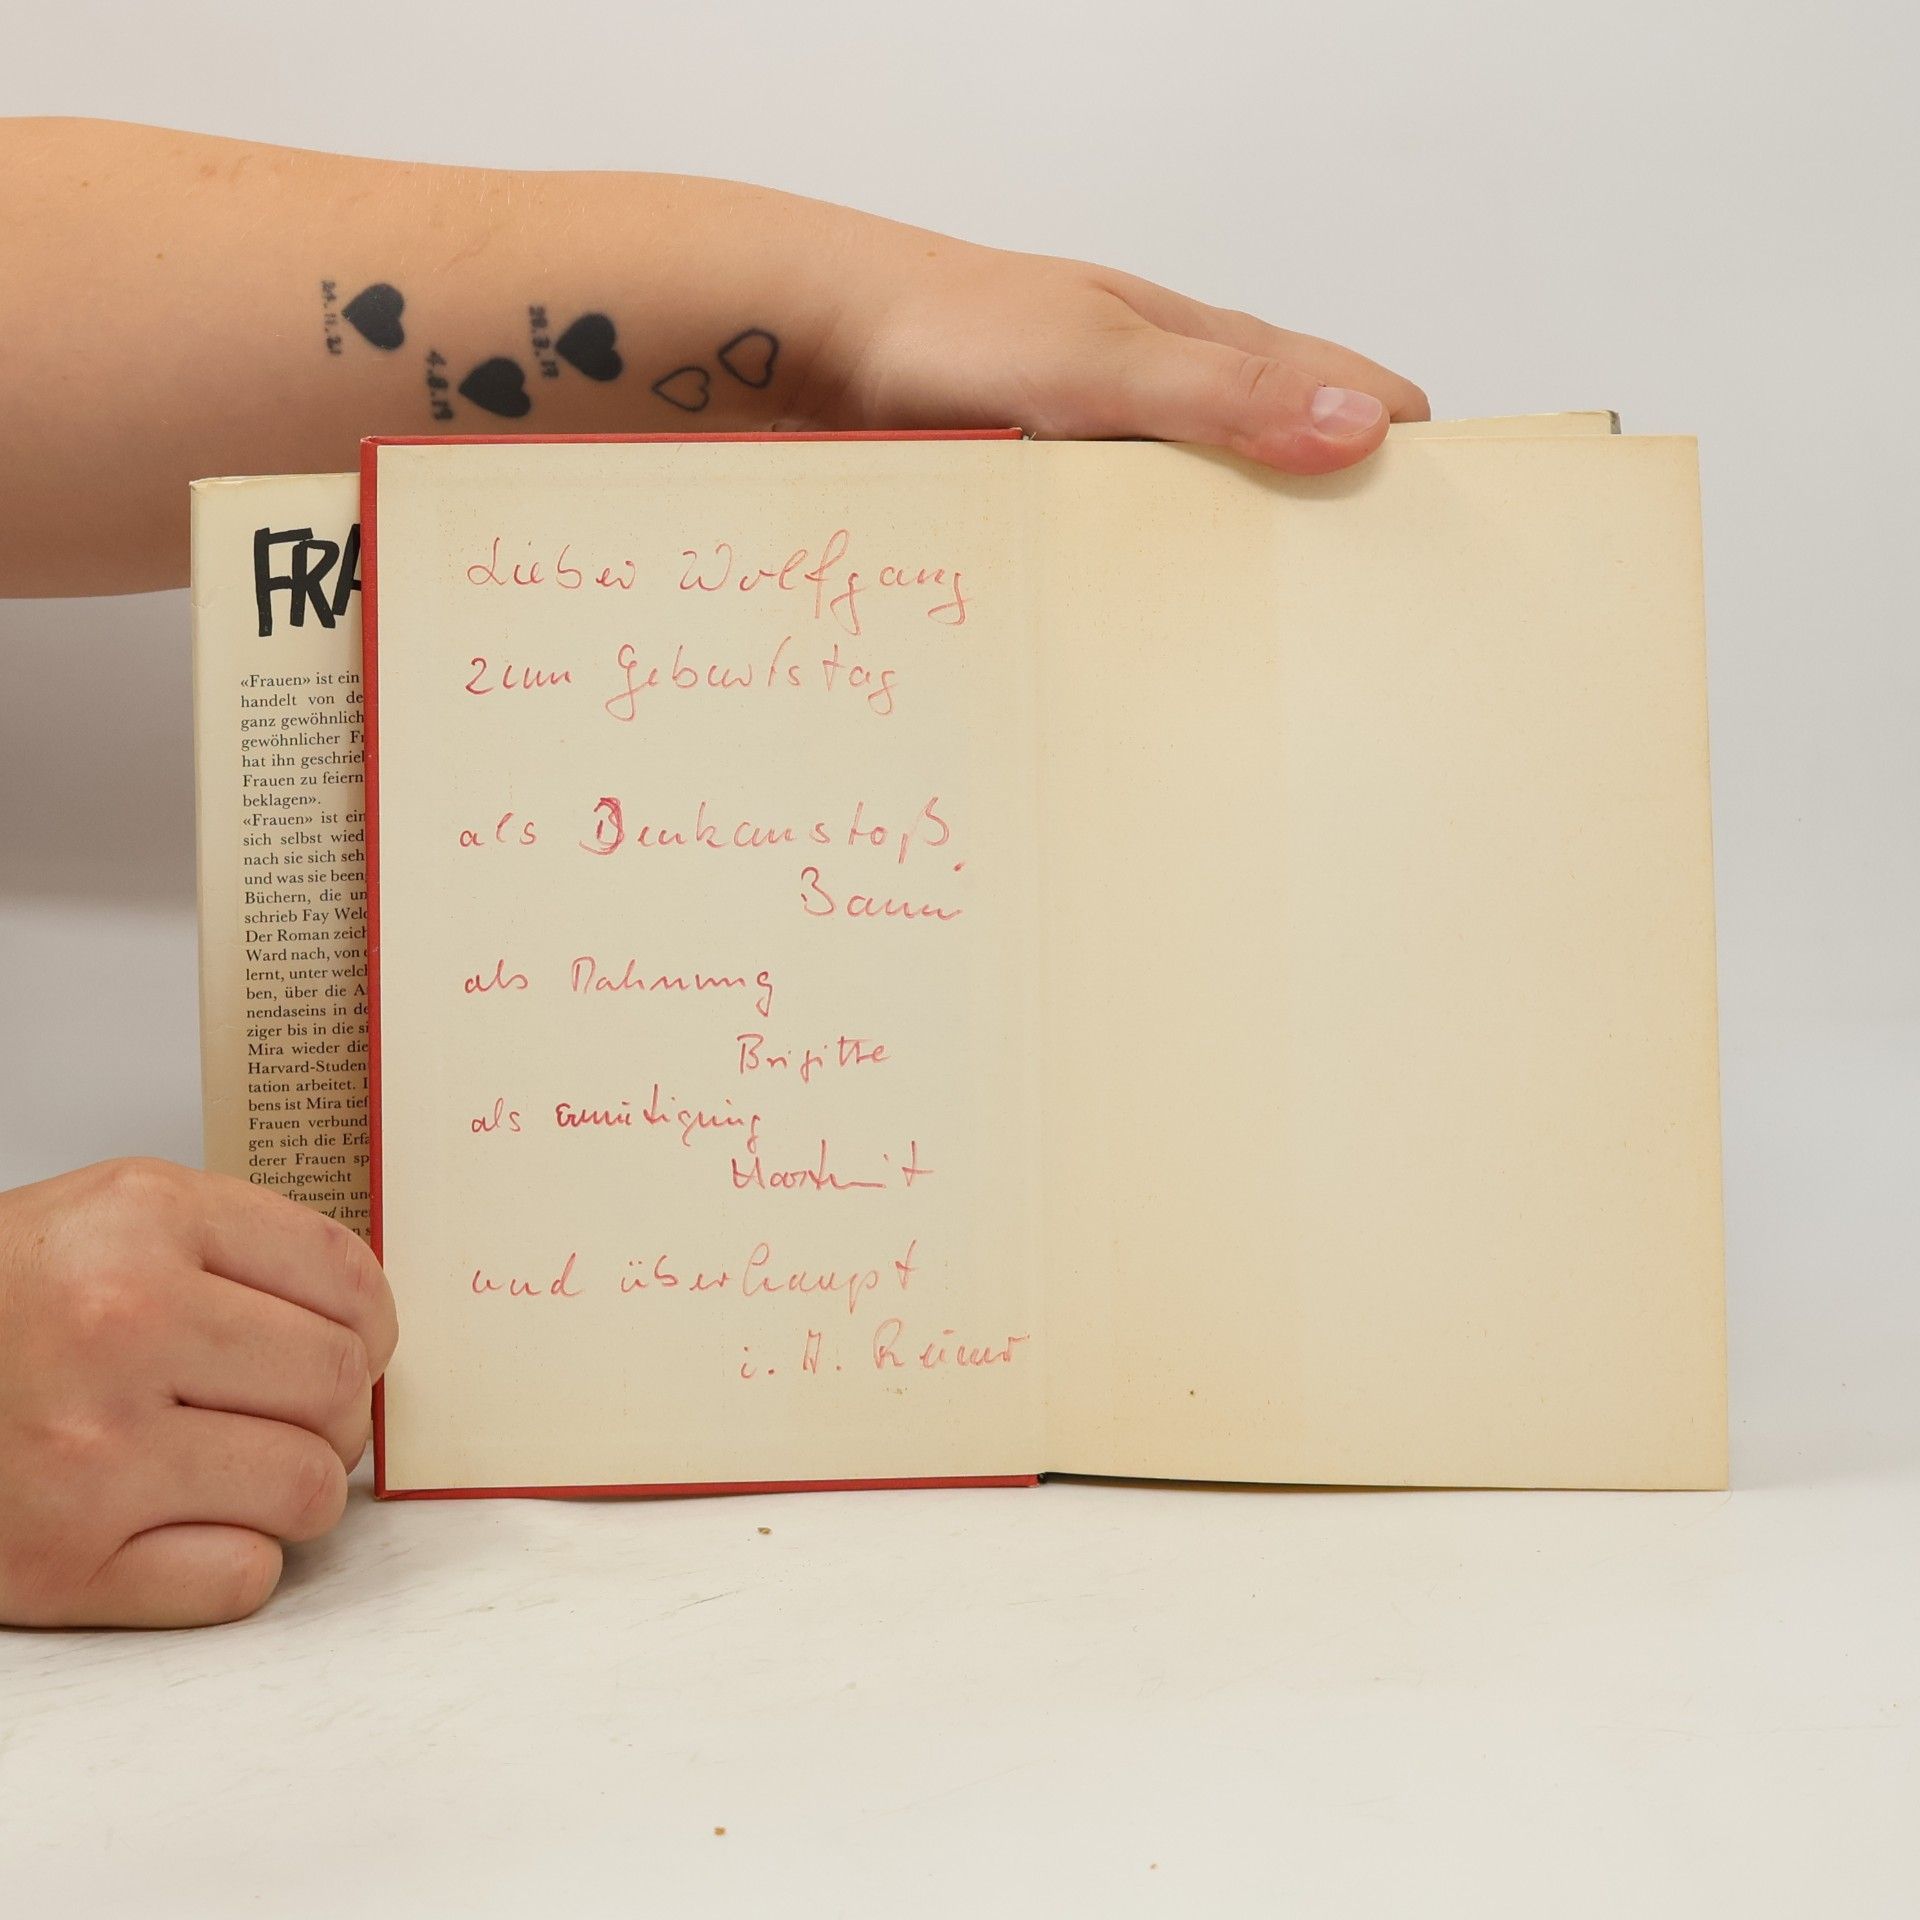 24.11.21
4.8.19
FRA
«Frauen» ist ein
handelt von de
ganz gewöhnlich
gewöhnlicher Fr
hat ihn geschrieb
Frauen zu feiern
beklagen».
«Frauen» ist ein
sich selbst wied
nach sie sich seh
und was sie been
Büchern, die un
schrieb Fay Weld
Der Roman zeich
Ward nach, von
lernt, unter welch
ben, über die A
nendaseins in de
ziger bis in die si
Mira wieder die
Harvard-Studen
tation arbeitet. I
bens ist Mira tief
Frauen verbund
gen sich die Erfa
derer Frauen sp
Gleichgewicht
sfrausein un
nd ihre
n s
Lieber Wolfgang
zum Geburtstag
als Denkanstoß
als Mahnung
Brigitte
als Ermutigung
Hartmut
und überhaupt
i. A. Reiner